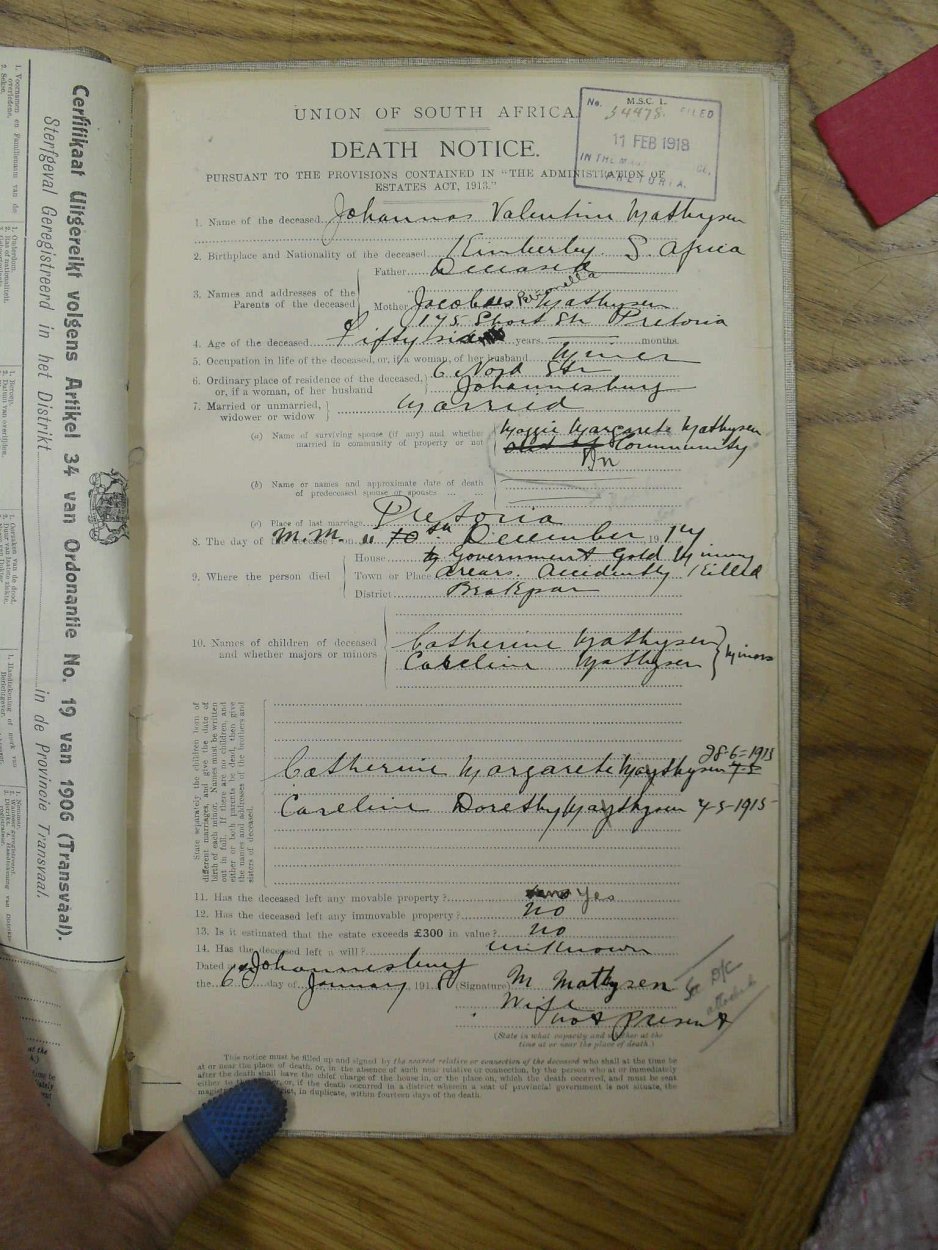 Certifikaat Uitgereikt volgens Artikel 34 van Ordonantie No. 19 van 1906 (Transvaal).
Sterfgeval Geregistreerd in het Distrikt in de Provincie Transvaal.
M.S.C. 1.
No. 34478. FILED
11 FEB 1918
IN THE
PRETORIA.
UNION OF SOUTH AFRICA
DEATH NOTICE.
PURSUANT TO THE PROVISIONS CONTAINED IN "THE ADMINISTRATION OF
ESTATES ACT, 1913."
1. Name of the deceased Johannas Valentine Mathysen
2. Birthplace and Nationality of the deceased Kimberley S. Africa
Father Deceased
3. Names and addresses of the
Parents of the deceased
Mother Mathysen
175 Short Str Pretoria
4. Age of the deceased Fifty years, months.
5. Occupation in life of the deceased, or, if a woman, of her husband Miner
6. Ordinary place of residence of the deceased, 6 Nord Str
or, if a woman, of her husband Johannesburg
7. Married or unmarried, Married
widower or widow
(a) Name of surviving spouse (if any) and whether Maggie Margarete Mathysen
married in community of property or not Community
In
(b) Name or names and approximate date of death
of predeceased spouse or spouses
(c) Place of last marriage Pretoria
8. The day of the decease: on December, 1917
House Government Gold Mining
9. Where the person died Town or Place areas. Accidently Killed
District Brakpan
10. Names of children of deceased Catherine Mathysen
and whether majors or minors Careline Mathysen Minors
State separately the children born of
different marriages, and give the date of
birth of each minor. Names must be written
out in full. If there are no children, and
either or both parents be dead, then give
the names and addresses of the brothers and
sisters of deceased.
28-6-1913
Catherine Margarete Maythysen
Careline Dorethy Maythysen 4-5-1915
11. Has the deceased left any movable property? Yes
12. Has the deceased left any immovable property? No
13. Is it estimated that the estate exceeds £300 in value? No
14. Has the deceased left a will? unknown
Dated Johannesburg
the 6 day of January, 1918 (Signature) M Mathysen
Wife
not present
See D/C
attached
(State in what capacity and whether at the
time at or near the place of death.)
This notice must be filled up and signed by the nearest relative or connection of the deceased who shall at the time be
at or near the place of death, or, in the absence of such near relative or connection, by the person who at or immediately
after the death shall have the chief charge of the house in, or the place on, which the death occurred, and must be sent
either to the or, if the death occurred in a district wherein a seat of provincial government is not situate, the
in duplicate, within fourteen days of the death.